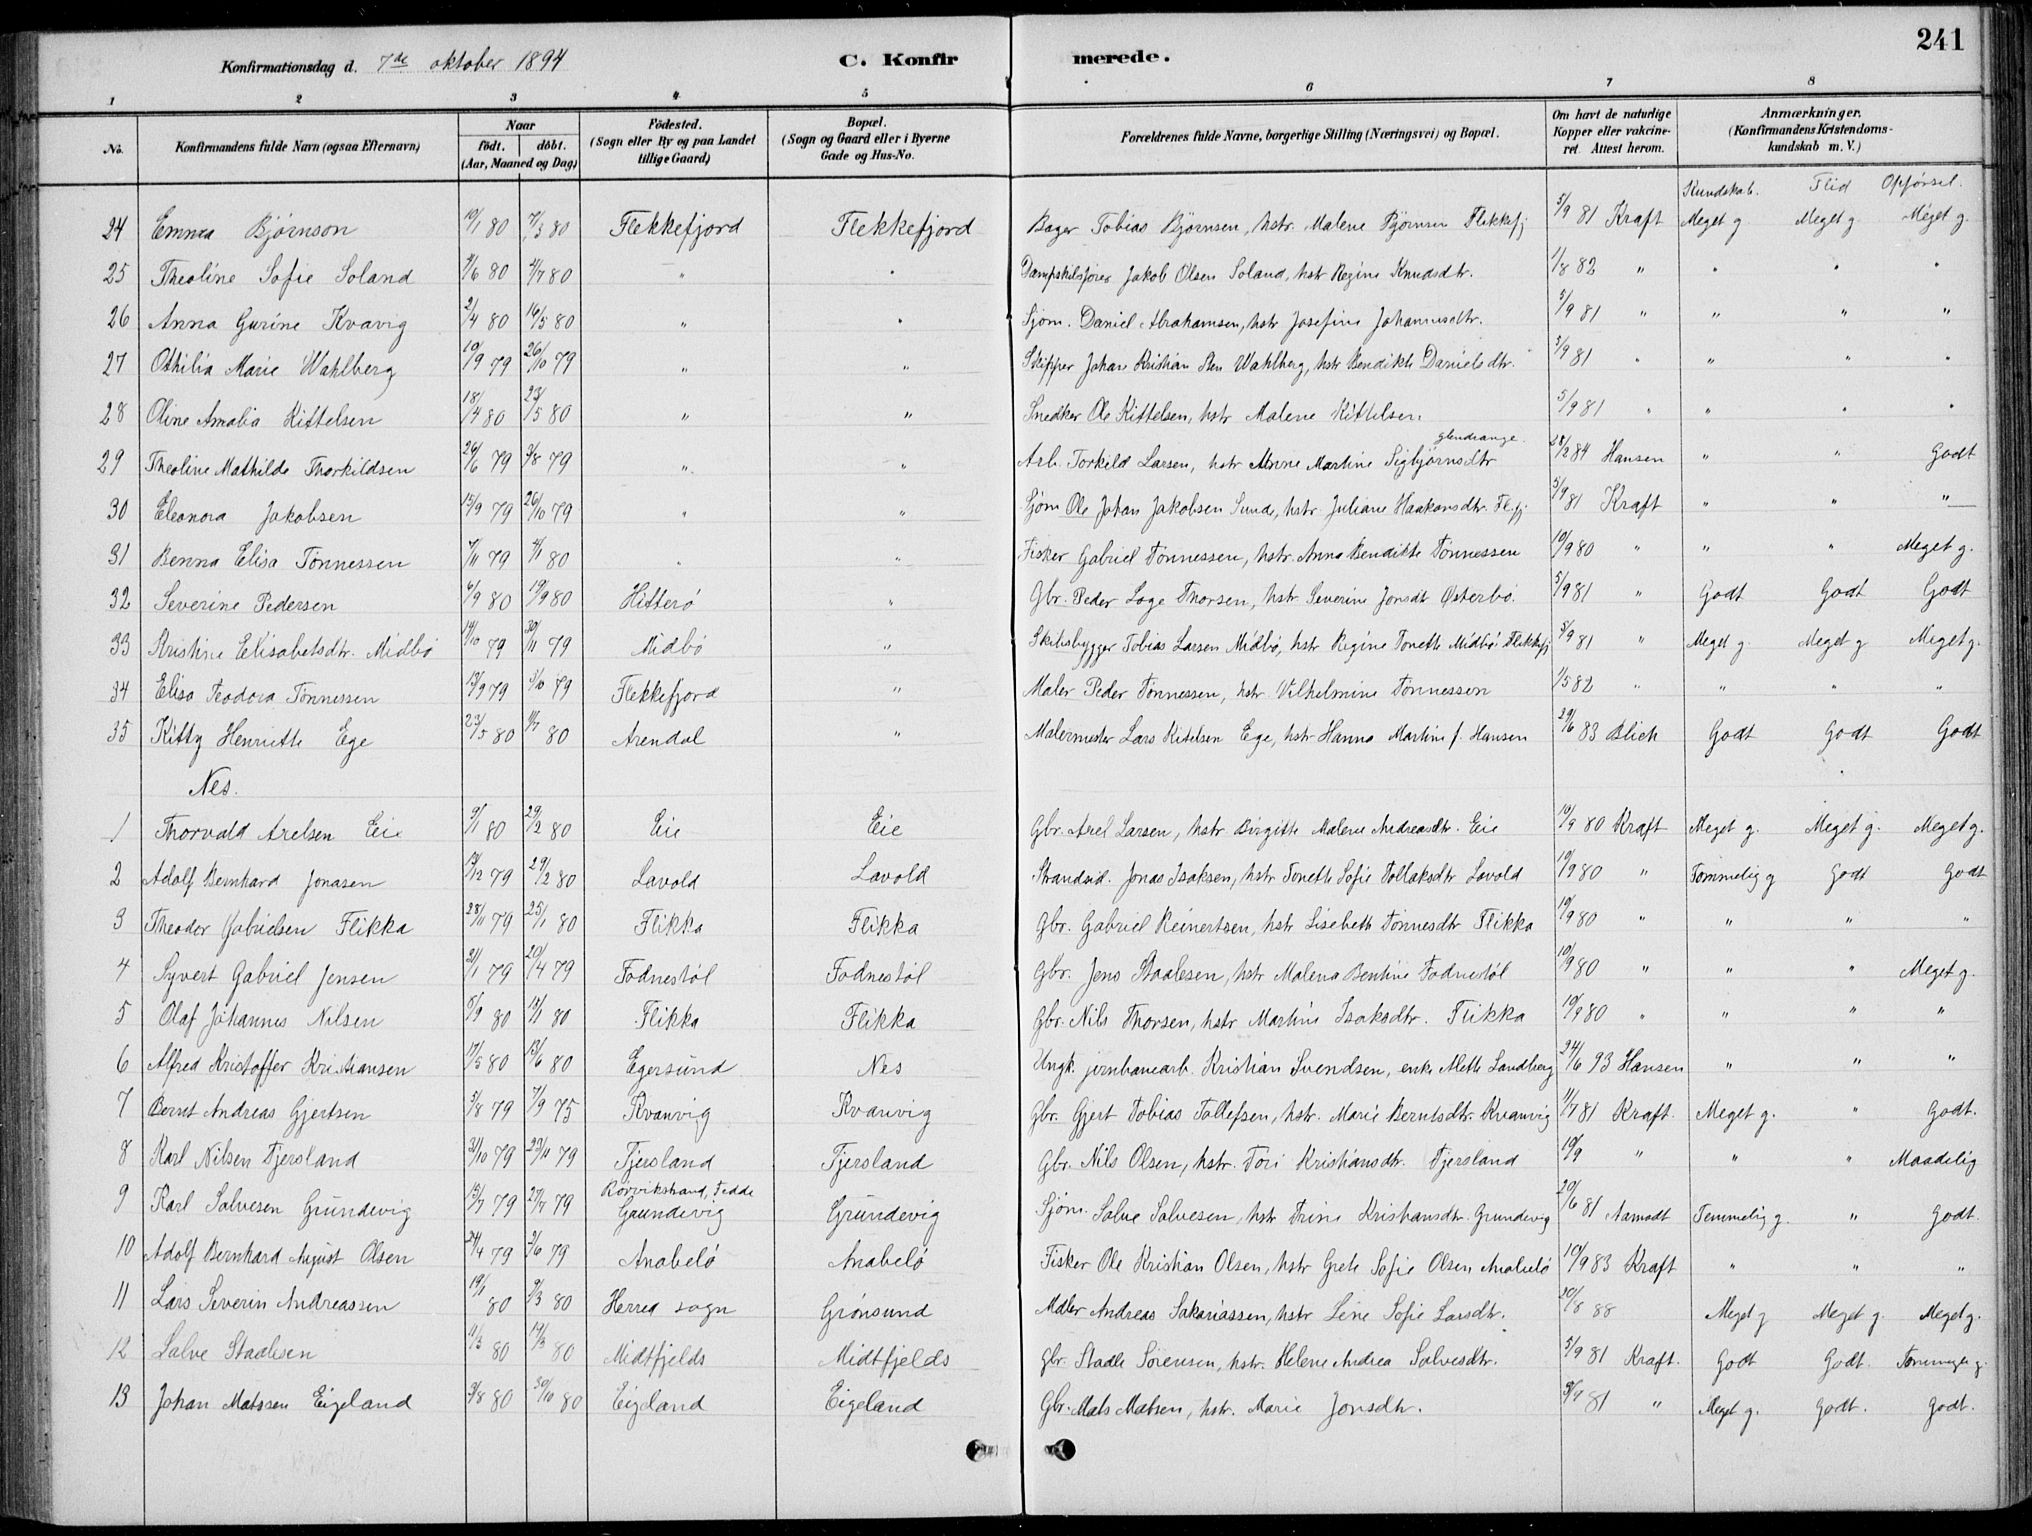 241
Konfirmationsdag d. 7de oktober 1894 C. Konfirmerede.
1 2 3 4 5 6 7 8
No. Konfirmandens fulde Navn (ogsaa Efternavn) Naar födt. döbt. (Aar, Maaned og Dag) Födested. (Sogn eller By og paa Landet tillige Gaard) Bopæl. (Sogn og Gaard eller i Byerne Gade og Hus-No. Forældrenes fulde Navne, borgerlige Stilling (Næringsvei) og Bopæl. Om havt de naturlige Kopper eller vakcineret. Attest herom. Anmærkninger. (Konfirmandens Kristendomskundskab m. V.)
Kundskab. Flid Opførsel.
24 Emma Bjørnson 10/1 80 7/3 80 Flekkefjord Flekkefjord Bager Tobias Bjørnsen, hstr. Malene Bjørnsen Flekkefj 5/9 81 Kraft Meget g Meget g. Meget g.
25 Theoline Sofie Soland 4/6 80 4/7 80 " " Dampskibsfører Jakob Olsen Soland, hstr Regine Knudsdtr. 1/8 82 " " " "
26 Anna Gurine Kvavig 2/4 80 16/5 80 " " Sjøm. Daniel Abrahamsen, hstr Josefine Johannesdtr. 5/9 81 " " " "
27 Othilia Marie Wahlberg 19/9 79 26/10 79 " " Skipper Johan Kristian Sten Wahlberg, hstr Bendikte Danielsdtr. 5/9 81 " " " "
28 Oline Amalia Kittelsen 18/4 80 23/5 80 " " Snedker Ole Kittelsen, hstr Malene Kittelsen 5/9 81 " " " "
29 Theoline Mathilde Thorkildsen 26/6 79 3/8 79 " " Arb. Torkild Larsen, hstr Anne Martine Sigbjørnsdtr Glendrange 28/2 84 Hansen " " Godt
30 Eleonora Jakobsen 15/9 79 26/10 79 " " Sjøm Ole Johan Jakobsen Sunde, hstr. Juliane Haakonsdtr. Flefj 5/9 81 Kraft " " "
31 Benna Elisa Tønnessen 7/11 79 4/1 80 " " Fisker Gabriel Tønnessen, hstr. Anna Benditte Tønnessen 10/9 80 " " " Meget g.
32 Severine Pedersen 6/9 80 19/9 80 Hitterø " Gbr. Peder Loge Thorsen, hstr. Severine Jonsdt Østerbø. 5/9 81 " Godt Godt Godt
33 Kristine Elisabetsdtr. Midbø 14/10 79 30/11 79 Midbø " Skibsbygger Tobias Larsen Midbø, hstr Regine Tonette Midbø Flekkefj 5/9 81 " Meget g. Meget g Meget g.
34 Elisa Teodora Tønnessen 13/9 79 5/10 79 Flekkefjord " Maler Peder Tønnessen, hstr. Vilhelmine Tønnessen 1/5 82 " " " "
35 Kitty Henriette Ege 23/5 80 11/7 80 Arendal " Malermester Lars Kitelsen Ege, hstr Hanna Martine f. Hansen 29/6 83 Blich Godt Godt Godt
Nes.
1 Thorvald Axelsen Eie 9/1 80 29/2 80 Eie Eie Gbr. Axel Larsen, hstr Birgitte Malene Andreasdtr. Eie 10/9 80 Kraft Meget g. Meget g. Meget g.
2 Adolf Bernhard Jonasen 13/12 79 29/2 80 Lavold Lavold Strandsid. Jonas Isaksen, hstr Tonette Sofie Tollaksdtr Lavold 10/9 80 " Temmelig g Godt Godt
3 Theodor Gabrielsen Flikka 28/11 79 25/1 80 Flikka Flikka Gbr. Gabriel Reinertsen, hstr Lisebeth Tønnesdtr Flikka 10/9 80 " " " "
4 Syvert Gabriel Jensen 21/1 79 20/4 79 Fodnestøl Fodnestøl Gbr. Jens Staalesen, hstr Malena Bentine Fodnestøl 10/9 80 " " " Meget g.
5 Olaf Johannes Nilsen 5/9 80 11/1 80 Flikka Flikka Gbr. Nils Thorsen, hstr Martine Isaksdtr. Flikka 10/9 80 " " " "
6 Alfred Kristoffer Kristiansen 17/5 80 13/6 80 Egersund Nes Ungk. jernbanearb. Kristian Svendsen, enke Mette Landberg 24/6 93 Hansen " " "
7 Bernt Andreas Gjertsen 5/8 79 7/9 75 Kvanvig Kvanvig Gbr. Gjert Tobias Tollefsen, hstr. Marie Berntsdtr. Kvanvig 11/7 81 Kraft. Meget g. " Godt.
8 Karl Nilsen Tjersland 31/10 79 23/11 79 Tjersland Tjersland Gbr. Nils Olsen, hstr. Tori Kristiansdtr. Tjersland 10/9 " " " Maadelig
9 Karl Salvesen Grundevig 13/7 79 27/7 79 Rørvikstrand, Fedde Grundevig Grundevig Sjøm. Salve Salvesen, hstr Trine Kristiansdtr. Grundevig 20/6 81 Aamodt Temmelig g. " Godt.
10 Adolf Bernhard August Olsen 24/4 79 2/6 79 Anabelø Anabelø Fisker Ole Kristian Olsen, hstr Grete Sofie Olsen Anabelø 10/9 83 Kraft " " "
11 Lars Severin Andreassen 19/1 80 9/3 80 Herred sogn Grønsund Maler Andreas Sakariassen, hstr Lene Sofie Larsdtr. 20/8 88 Meget g Meget g. Meget g.
12 Salve Staalesen 11/3 80 14/3 80 Midtfjelds Midtfjelds Gbr. Staale Sørensen, hstr. Helene Andrea Salvesdtr. 5/9 81 Kraft. Godt Godt. Temmelig g.
13 Johan Matssen Eigeland 9/8 80 30/10 80 Eigeland Eigeland Gbr. Mats Matsen, hstr. Marie Jonsdtr. 5/9 81 " Meget g. Godt. Godt.